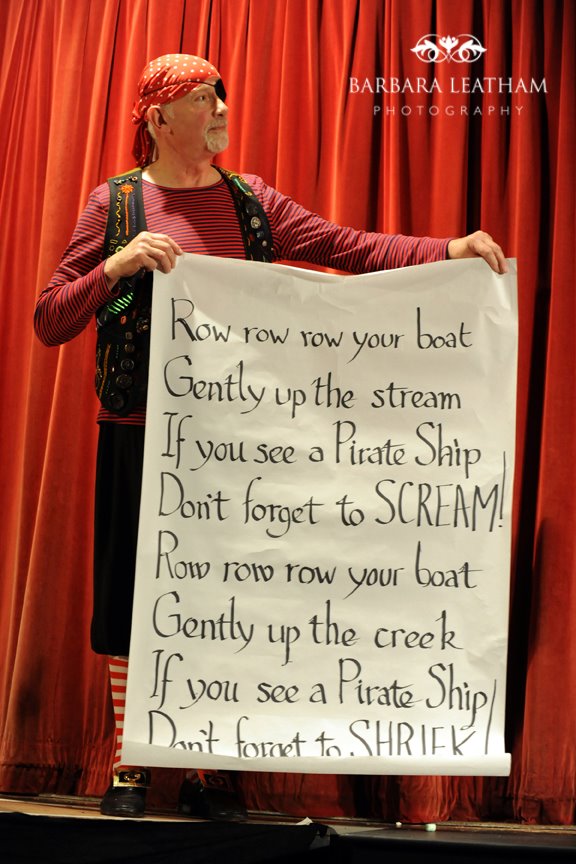 BARBARA LEATHAM
PHOTOGRAPHY
Row row row your boat
Gently up the stream
If you see a Pirate Ship
Don't forget to SCREAM!
Row row row your boat
Gently up the creek
If you see a Pirate Ship
Don't forget to SHRIEK!